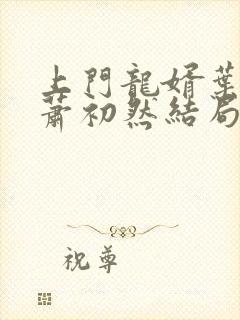 上門龍婿葉
蕭初然結局
祝尊